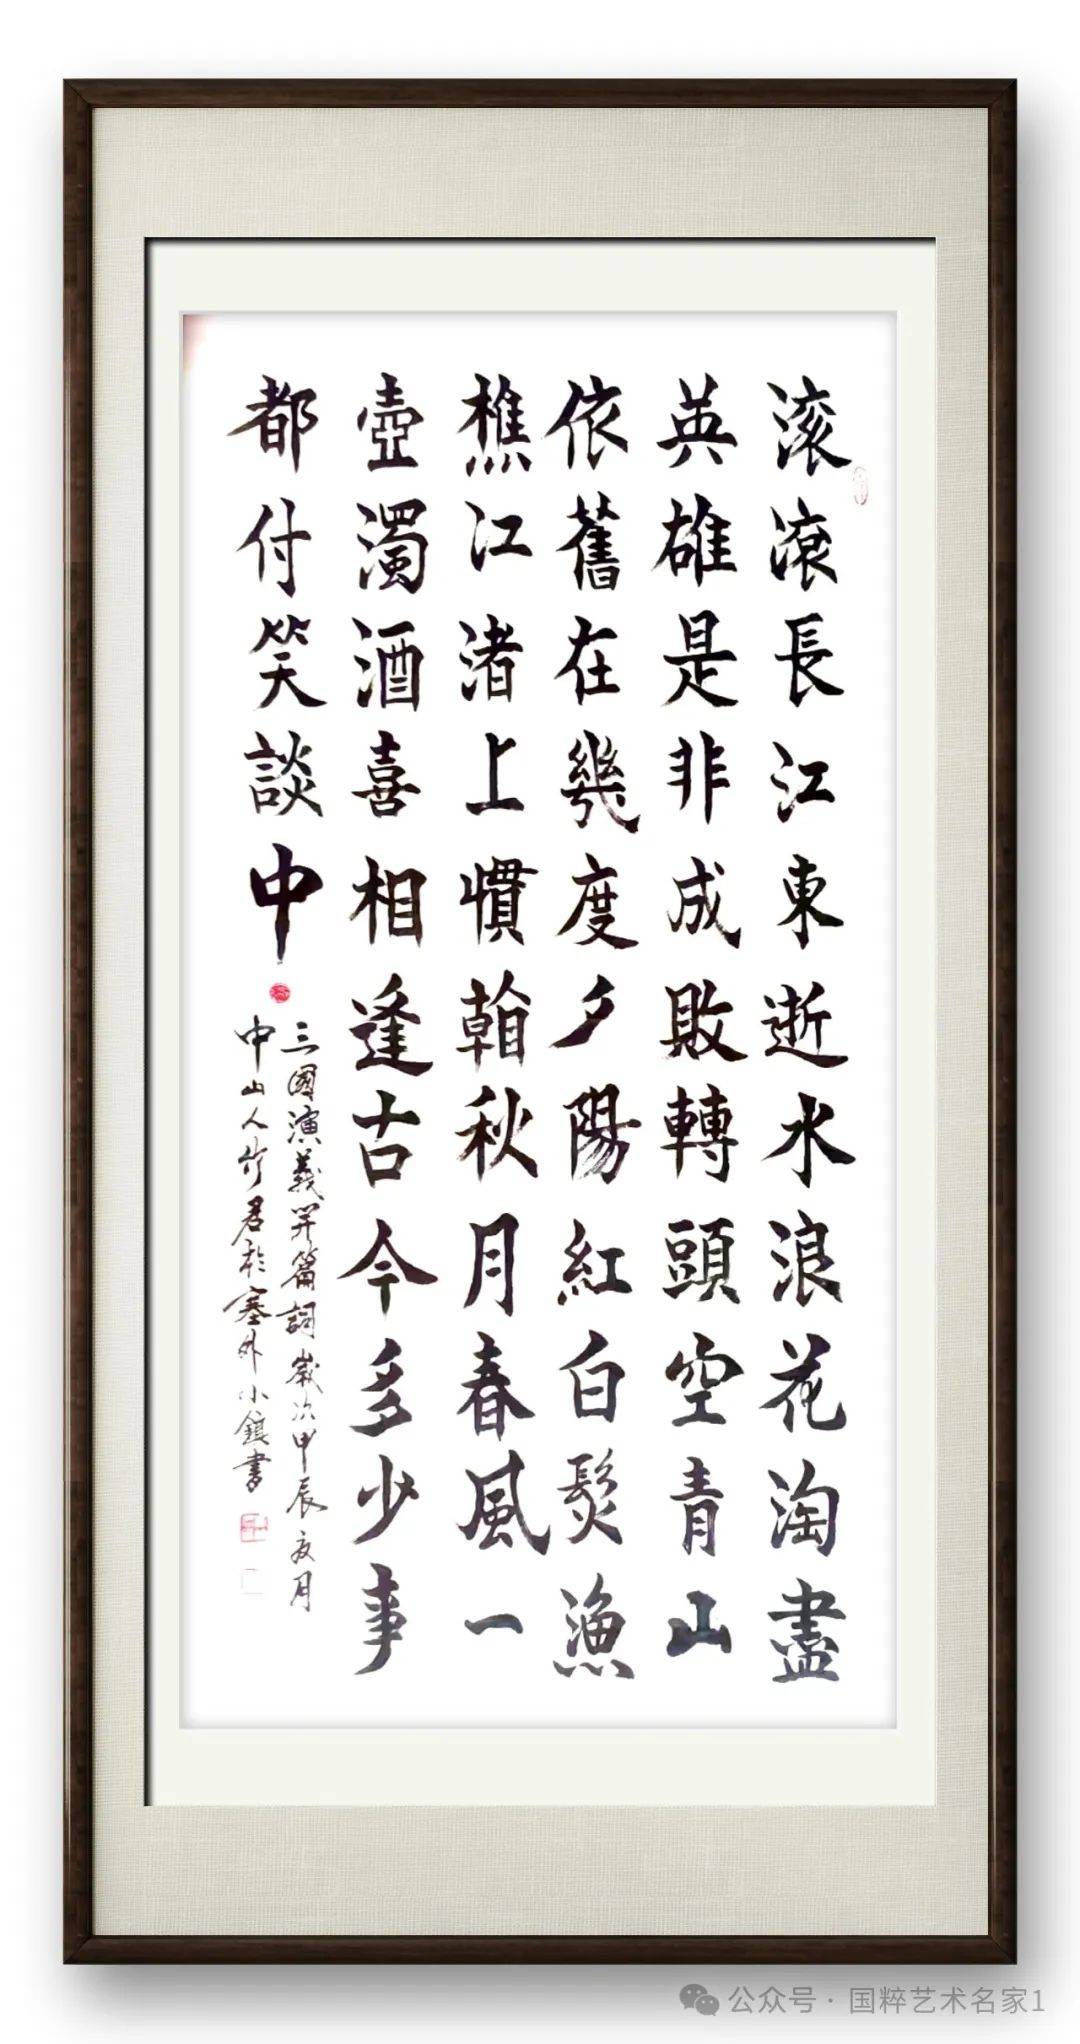 滚滾長江東逝水浪花淘盡
英雄是非成敗轉頭空青山
依舊在幾度夕陽紅白髮漁
樵江渚上慣看秋月春風一
壺濁酒喜相逢古今多少事
都付笑談中
三國演義开篇詞歲次甲辰亥月
中山人竹君於塞外小鎮書
公众号 · 国粹艺术名家1